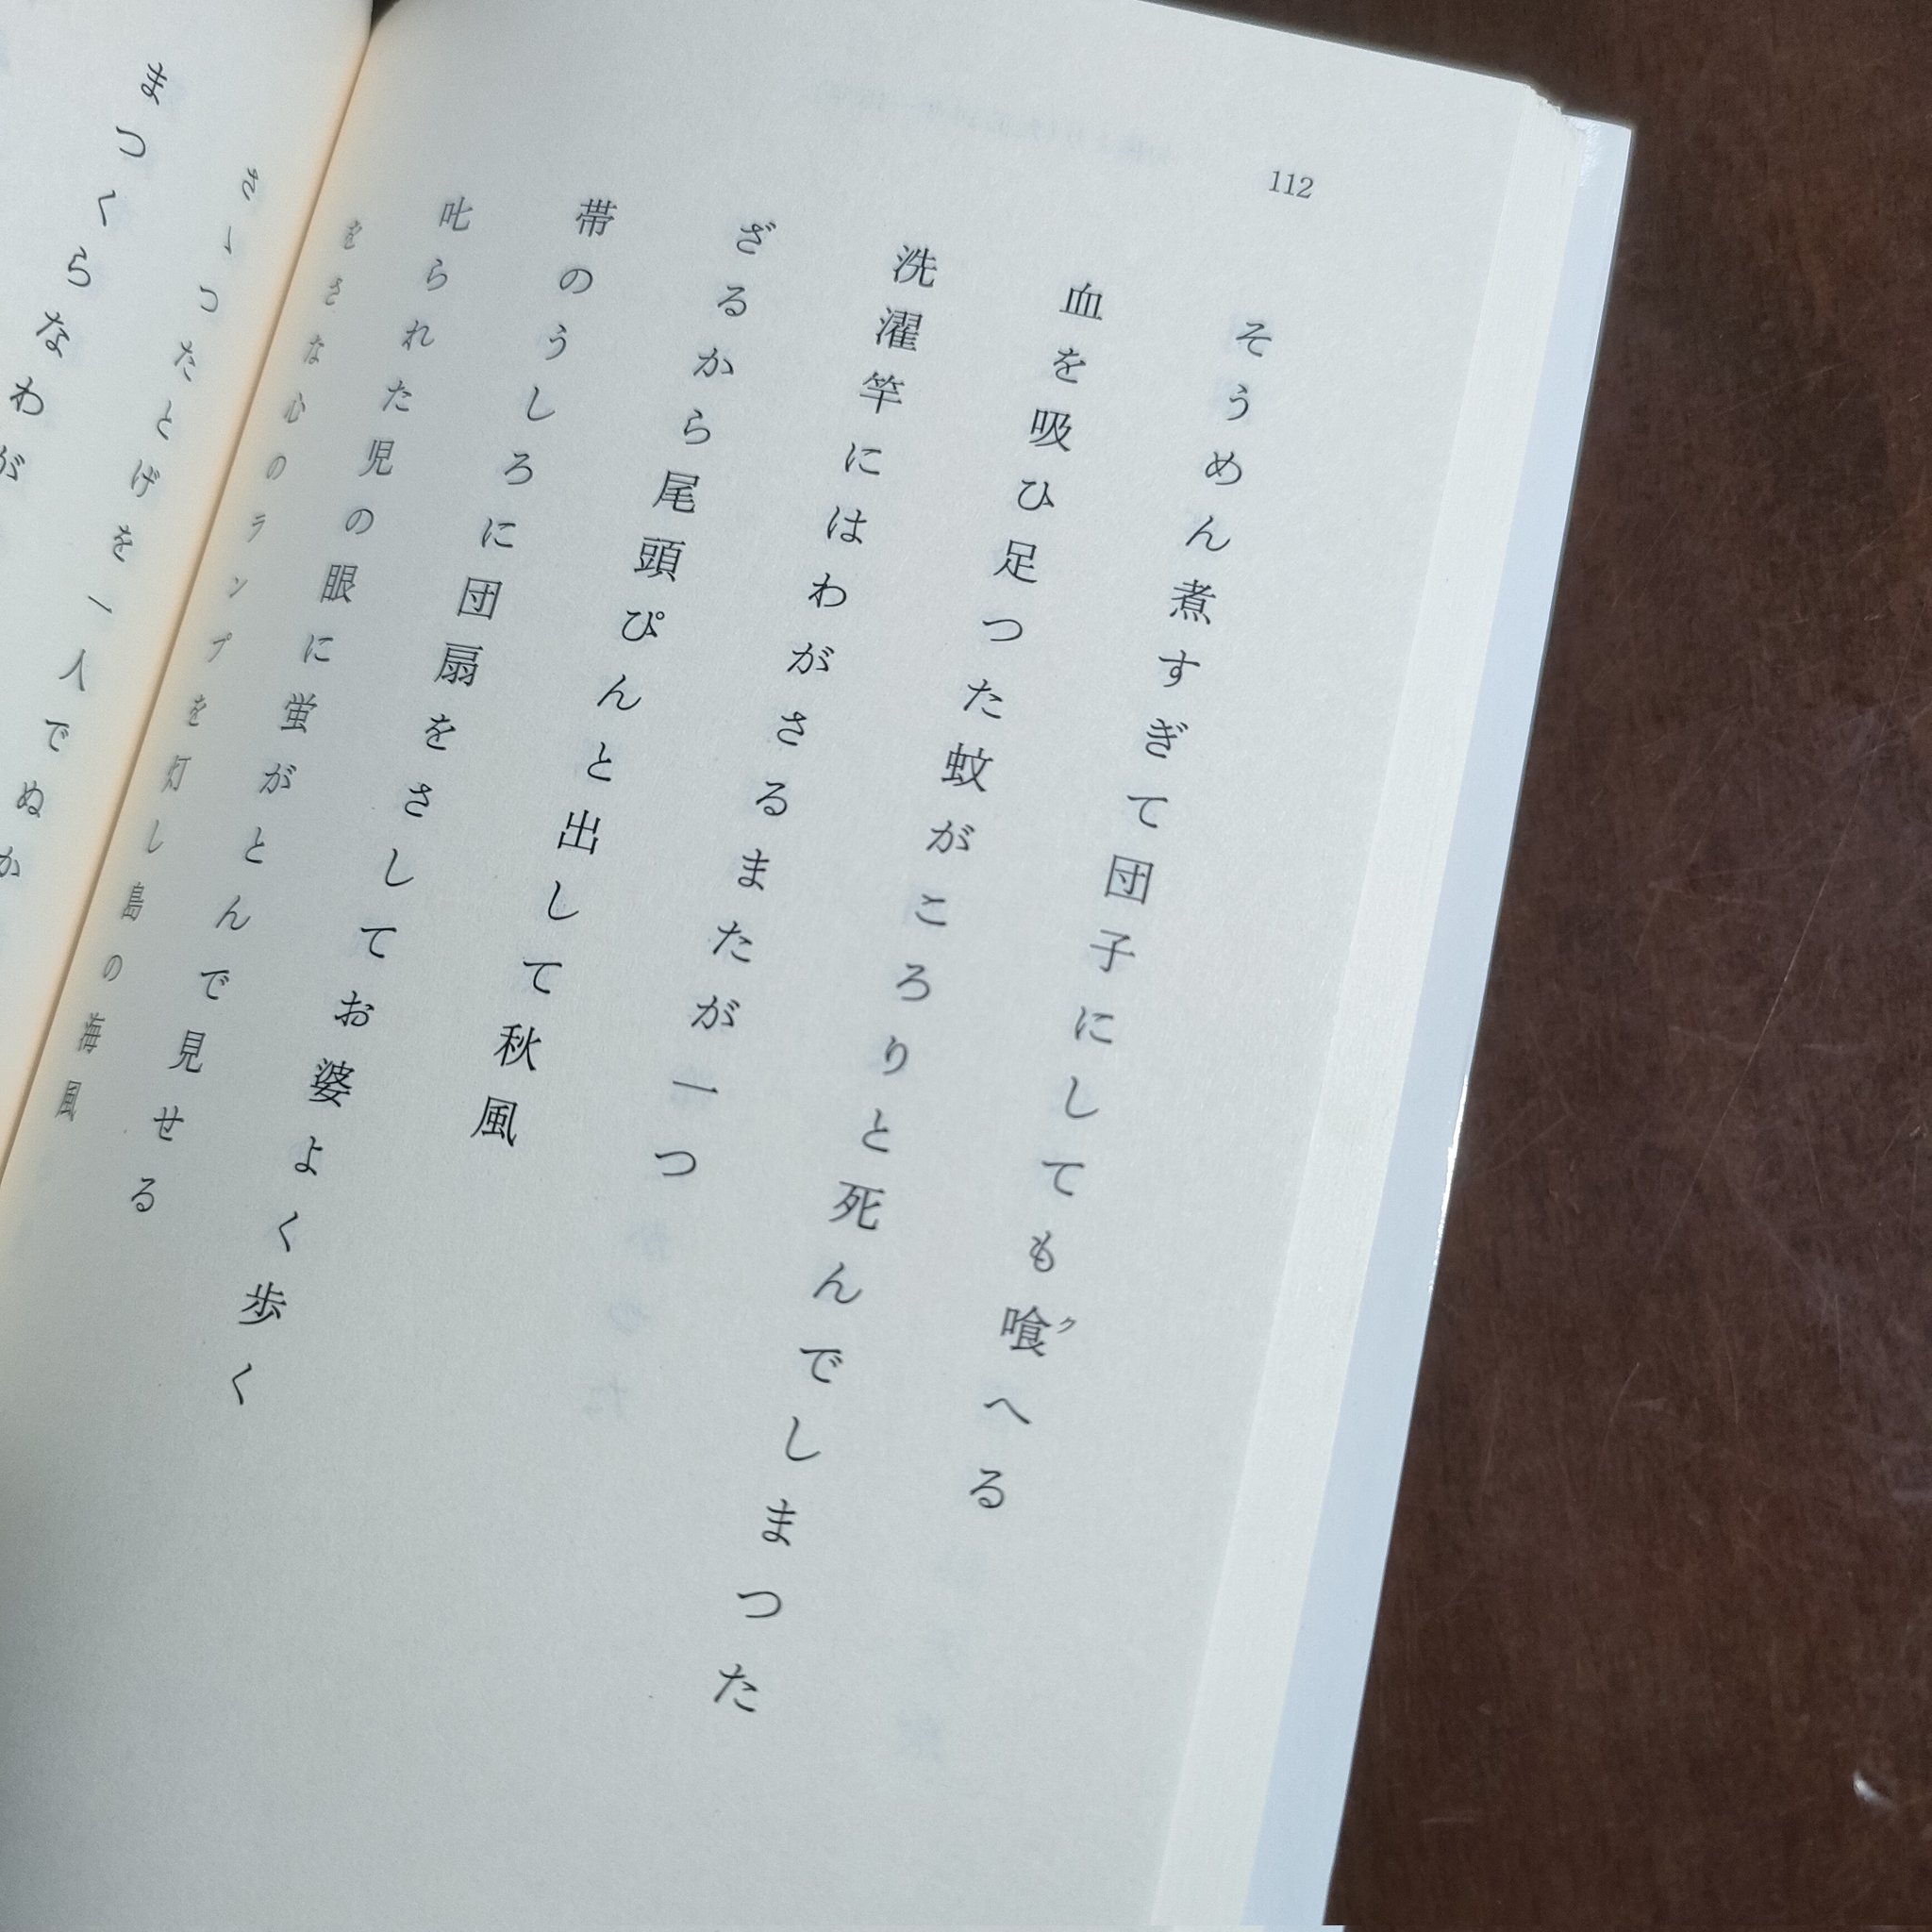 112
そうめん煮すぎて団子にしても喰へる
ク
血を吸ひ足つた蚊がころりと死んでしまつた
洗濯竿にはわがさるまたが一つ
ざるから尾頭ぴんと出して秋風
帯のうしろに団扇をさしてお婆よく歩く
叱られた児の眼に蛍がとんで見せる
をさな心のランプを灯し島の海風
さゝつたとげを一人でぬか
まつくらなわが